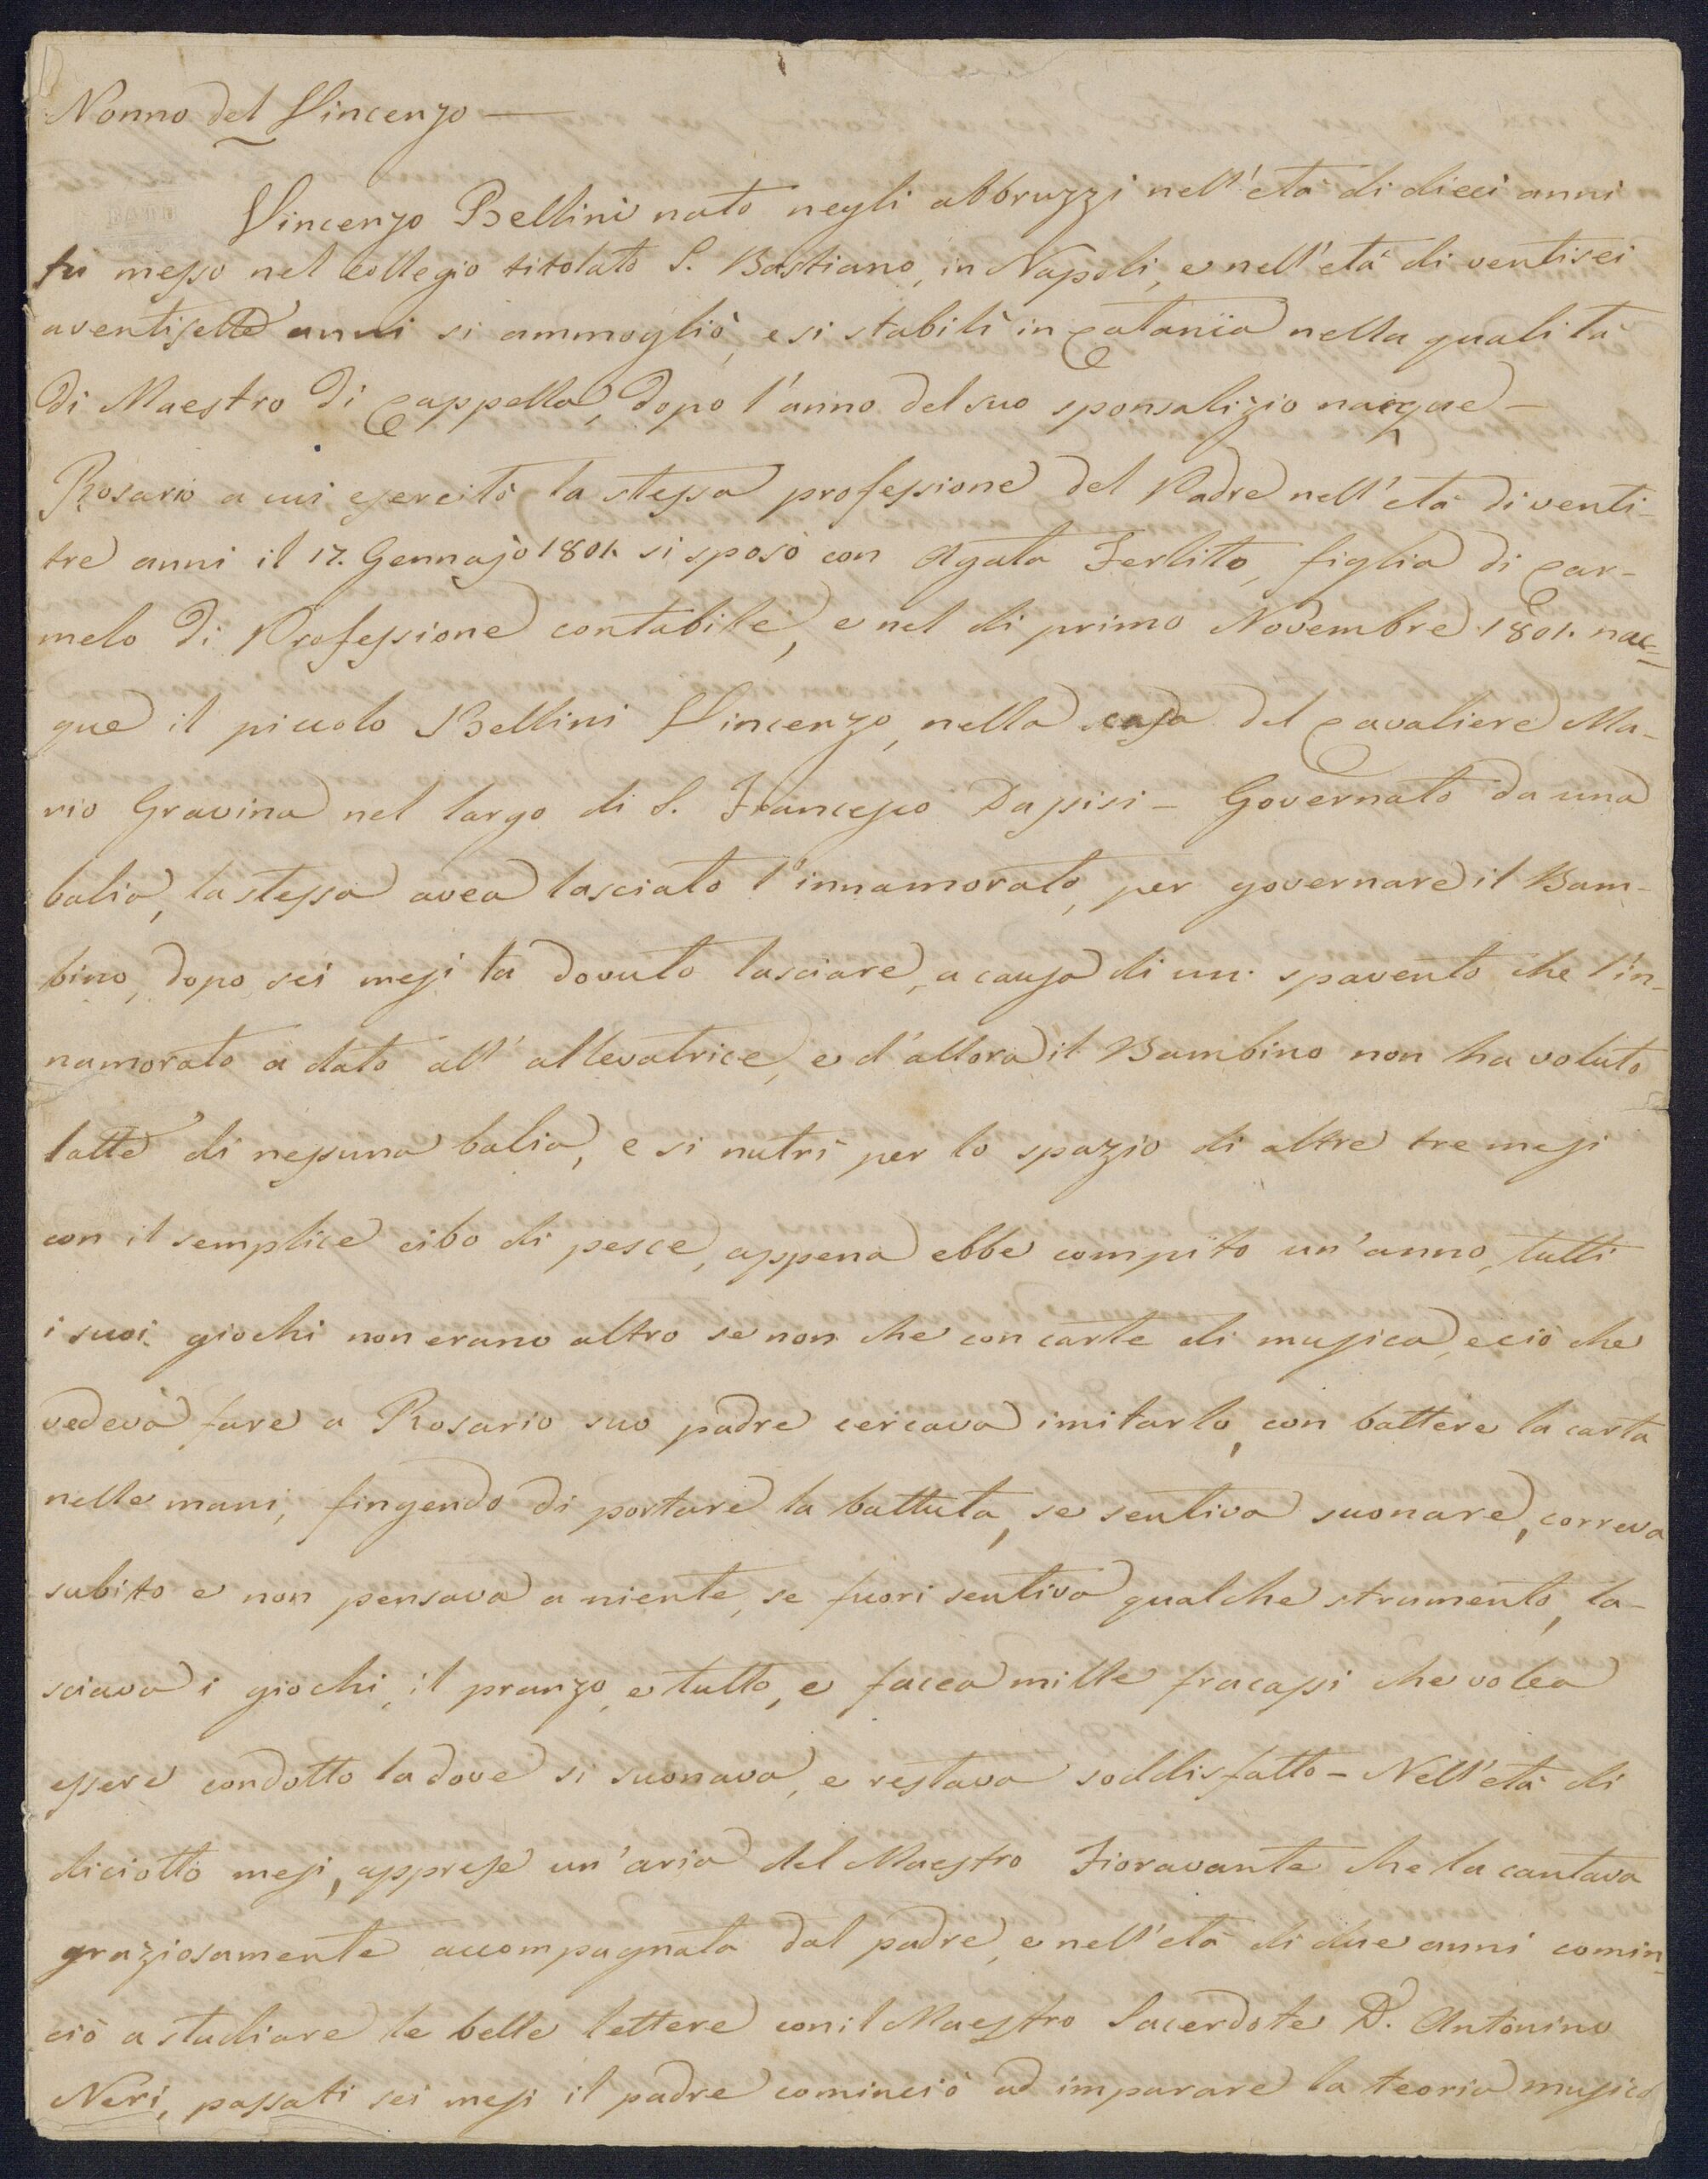 Nonno del Vincenzo —
Vincenzo Bellini nato negli abbruzzi nell'età di dieci anni
fù messo nel collegio titolato S. Bastiano, in Napoli, e nell'età di ventisei
aventisette anni si ammogliò, e si stabilì in Catania nella qualità
di Maestro di Cappella, dopo l'anno del suo sponsalizio nacque —
Rosario a cui esercitò la stessa professione del Padre nell'età di venti-
tre anni il 17. Gennajo 1801. si sposò con Agata Ferlito, figlia di Car-
melo di Professione contabile, e nel di primo Novembre 1801. nac-
que il piccolo Bellini Vincenzo, nella casa del Cavaliere Ma-
rio Gravina nel largo di S. Francesco Dassisi — Governato da una
balia, la stessa avea lasciato l'innamorato, per governare il Bam-
bino, dopo sei mesi la dovuto lasciare, a causa di un spavento che l'in-
namorato a dato all'allevatrice, e d'allora il Bambino non ha voluto
latte di nessuna balia, e si nutrì per lo spazio di altre tre mesi
con il semplice cibo di pesce, appena ebbe compito un'anno, tutti
i suoi giochi non erano altro se non che con carte di musica, e ciò che
vedeva fare a Rosario suo padre cercava imitarlo, con battere la carta
nelle mani, fingendo di portare la battuta, se sentiva suonare, correva
subito e non pensava a niente, se fuori sentiva qualche strumento, la-
sciava i giochi, il pranzo, e tutto, e facea mille fracassi che volea
essere condotto la dove si suonava, e restava soddisfatto — Nell'età di
diciotto mesi, apprese un'aria del Maestro Fioravante che la cantava
graziosamente accompagnata dal padre, e nell'età di due anni comin-
ciò a studiare le belle lettere con il Maestro Sacerdote D. Antonino
Neri, passati sei mesi il padre cominciò ad imparare la teoria musica